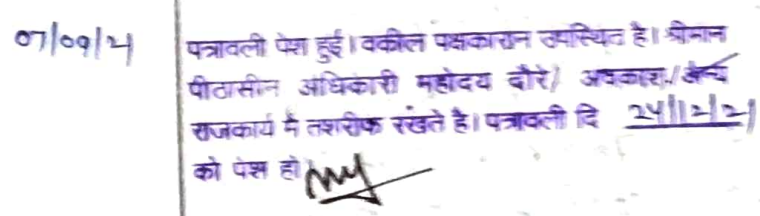 07/09/21
पत्रावली पेश हुई। वकील पक्षकारान उपस्थित है। श्रीमान
पीठासीन अधिकारी महोदय दौरे/ अवकाश/अन्य
राजकार्य में तशरीफ रखते है। पत्रावली दि 24/12/21
को पेश हो